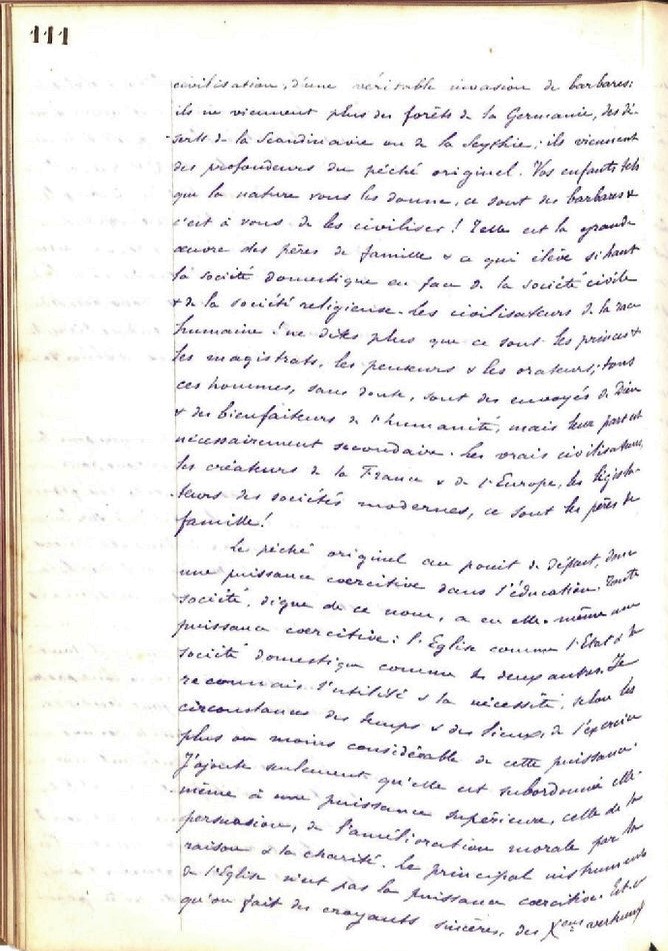 111
civilisation, d'une véritable invasion de barbares:
ils ne viennent plus des forêts de la Germanie, des dé-
serts de la Scandinavie ou de la Scythie; ils viennent
des profondeurs du péché originel. Vos enfants tels
que la nature vous les donne, ce sont des barbares &
c'est à vous de les civiliser! Telle est la grande
œuvre des pères de famille & ce qui élève si haut
la société domestique en face de la société civile
& de la société religieuse. Les civilisateurs de la race
humaine! ne dites plus que ce sont les princes &
les magistrats, les penseurs & les orateurs; tous
ces hommes, sans doute, sont des envoyés de Dieu
& des bienfaiteurs de l'humanité, mais leur part est
nécessairement secondaire. Les vrais civilisateurs,
les créateurs de la France & de l'Europe, les législa-
teurs des sociétés modernes, ce sont les pères de
famille!
Le péché originel au point de départ, donc
une puissance coercitive dans l'éducation. Toute
société, digne de ce nom, a en elle-même une
puissance coercitive: l'Eglise comme l'Etat & la
société domestique comme les deux autres. Je
reconnais l'utilité & la nécessité, selon les
circonstances des temps & des lieux, de l'exercice
plus ou moins considérable de cette puissance.
J'ajoute seulement qu'elle est subordonnée elle-
même à une puissance supérieure, celle de la
persuasion, de l'amélioration morale par la
raison & la charité. Le principal instrument
de l'Eglise n'est pas la puissance coercitive. Est-ce
qu'on fait des croyants sincères, des Xens vertueux